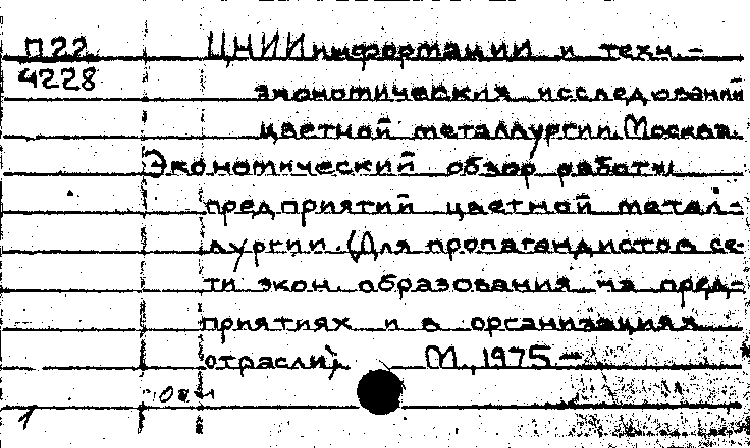 П22 ЦНИИинформации и техн.-
4228 экономических исследований
цветной металлургии. Москва.
Экономический обзор работы
предприятий цветной метал-
лургии. (Для пропагандистов се-
ти экон. образования на пред-
приятиях и в организациях
отрасли). М., 1975-
1